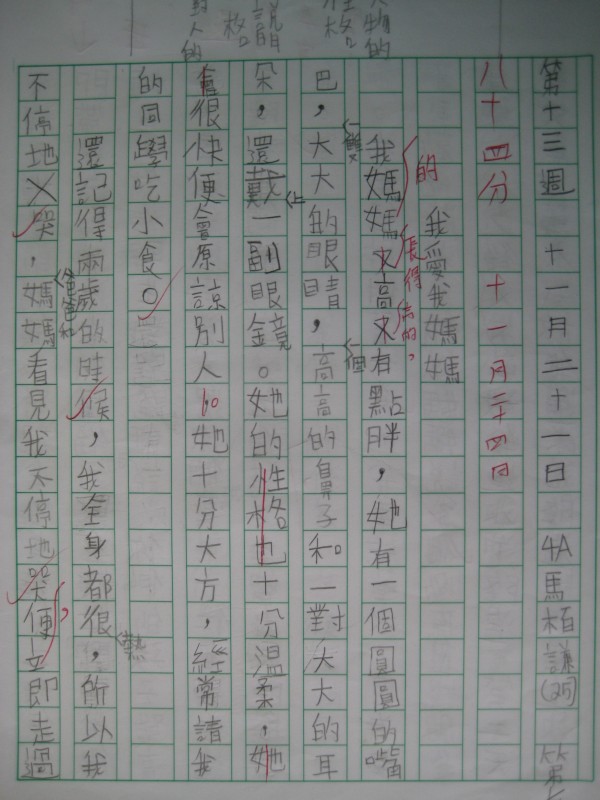 第十三週 十一月二十一日 4A 馬栢謙(25)
八十四分 十一月二十四日
我愛我媽媽
我媽媽的長得高高的,有點胖,她有一個圓圓的嘴
巴,一雙大大的眼睛,一個高高的鼻子和一對大大的耳
朵,還戴上一副眼鏡。她的性格也十分溫柔,她
會很快便會原諒別人。她十分大方,經常請我
的同學吃小食。
還記得兩歲的時候,我全身都很熱,所以我
不停地哭,爸爸和媽媽看見我不停地哭,便立即走過